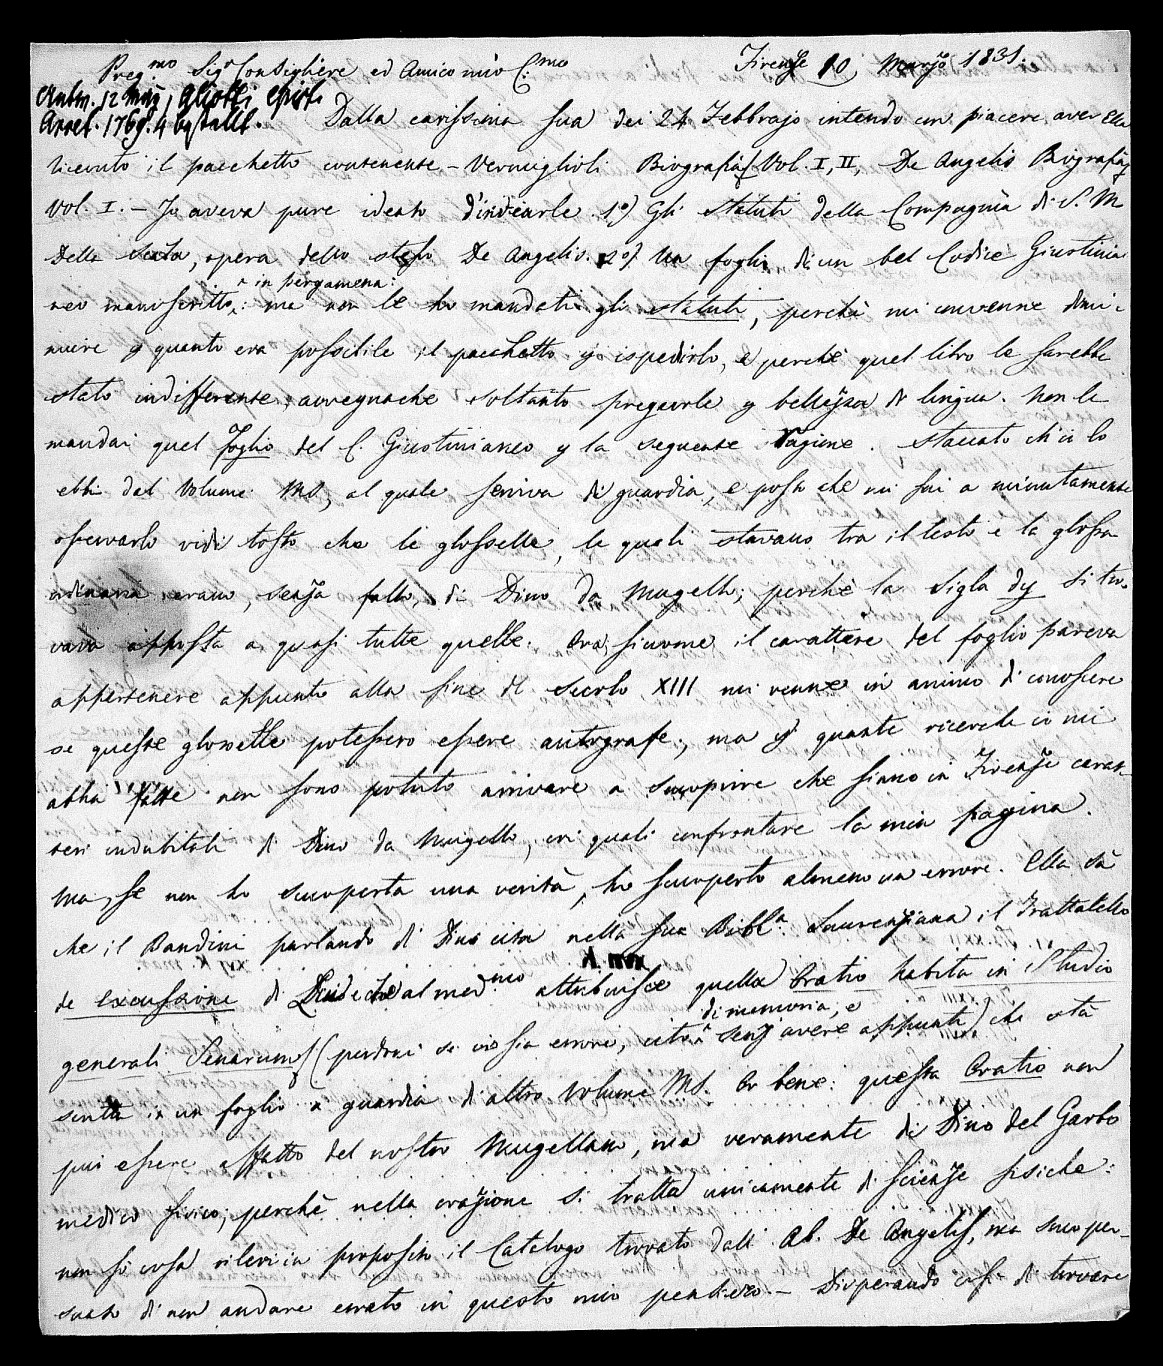 Preg.mo Sig.r Consigliere ed Amico mio C.mo Firenze 10 Marzo 1831.
Antw. 12 May, Aliotti Epist.
Arret. 1769. 4 bestellt.
Dalla carissima sua dei 24 Febbrajo intendo con piacere aver Ella
ricevuto il pacchetto contenente – Vermiglioli Biografia Vol. I, II, De Angelis Biografia
Vol. I. – Io aveva pure ideato d'inviarle 1º) Gli Statuti della Compagnia di S. M
Della Scala, opera dello stesso De Angelis. 2º) Un foglio di un bel Codice Giustinia
neo manoscritto, in pergamena: ma non le ho mandati gli Statuti, perchè mi convenne dimi-
nuire p quanto era possibile il pacchetto p ispedirlo, e perchè quel libro le sarebbe
stato indifferente, avvegnache soltanto pregevole p bellezza di lingua. Non le
mandai quel foglio del C. Giustinianeo p la seguente ragione. Staccato ch'io lo
ebbi dal Volume MS, al quale serviva di guardia, e posto che mi fui a minutamente
osservarlo vidi tosto che le glossette, le quali stavano tra il testo e la glossa
ordinaria erano, senza fallo, di Dino da Mugello; perchè la sigla dy si tro-
vava apposta a quasi tutte quelle. Ora, siccome il carattere del foglio pareva
appartenere appunto alla fine del secolo XIII mi venne in animo di conoscere
se queste glossette potessero essere autografe; ma p quante ricerche io mi
abbia fatte non sono potuto arrivare a scuoprire che siano in Firenze carat-
teri indubitati di Dino da Mugello, coi quali confrontare la mia pagina.
Ma, se non ho scuoperta una verità, ho scuoperto almeno un errore. Ella sà
che il Bandini parlando di Dino cita nella sua Bibl.a Laurenziana il Trattatello
de excussione di Dino e che al med.mo attribuisce quella Oratio habita in Studio
generali Senarum (perdoni se vi sia errore, cito di memoria, e senz'avere appunti) che stà
scritta in un foglio a guardia d'altro Volume MS. Or bene: questa Oratio non
può essere affatto del nostro Mugellano, ma veramente di Dino del Garbo
medico fisico; perchè nella orazione si tratta unicamente di scienze fisiche:
non so cosa rilevi in proposito il Catalogo trovato dall' Ab. De Angelis, ma sono per-
suaso di non andare errato in questo mio pensiero. – Disperando così di trovare